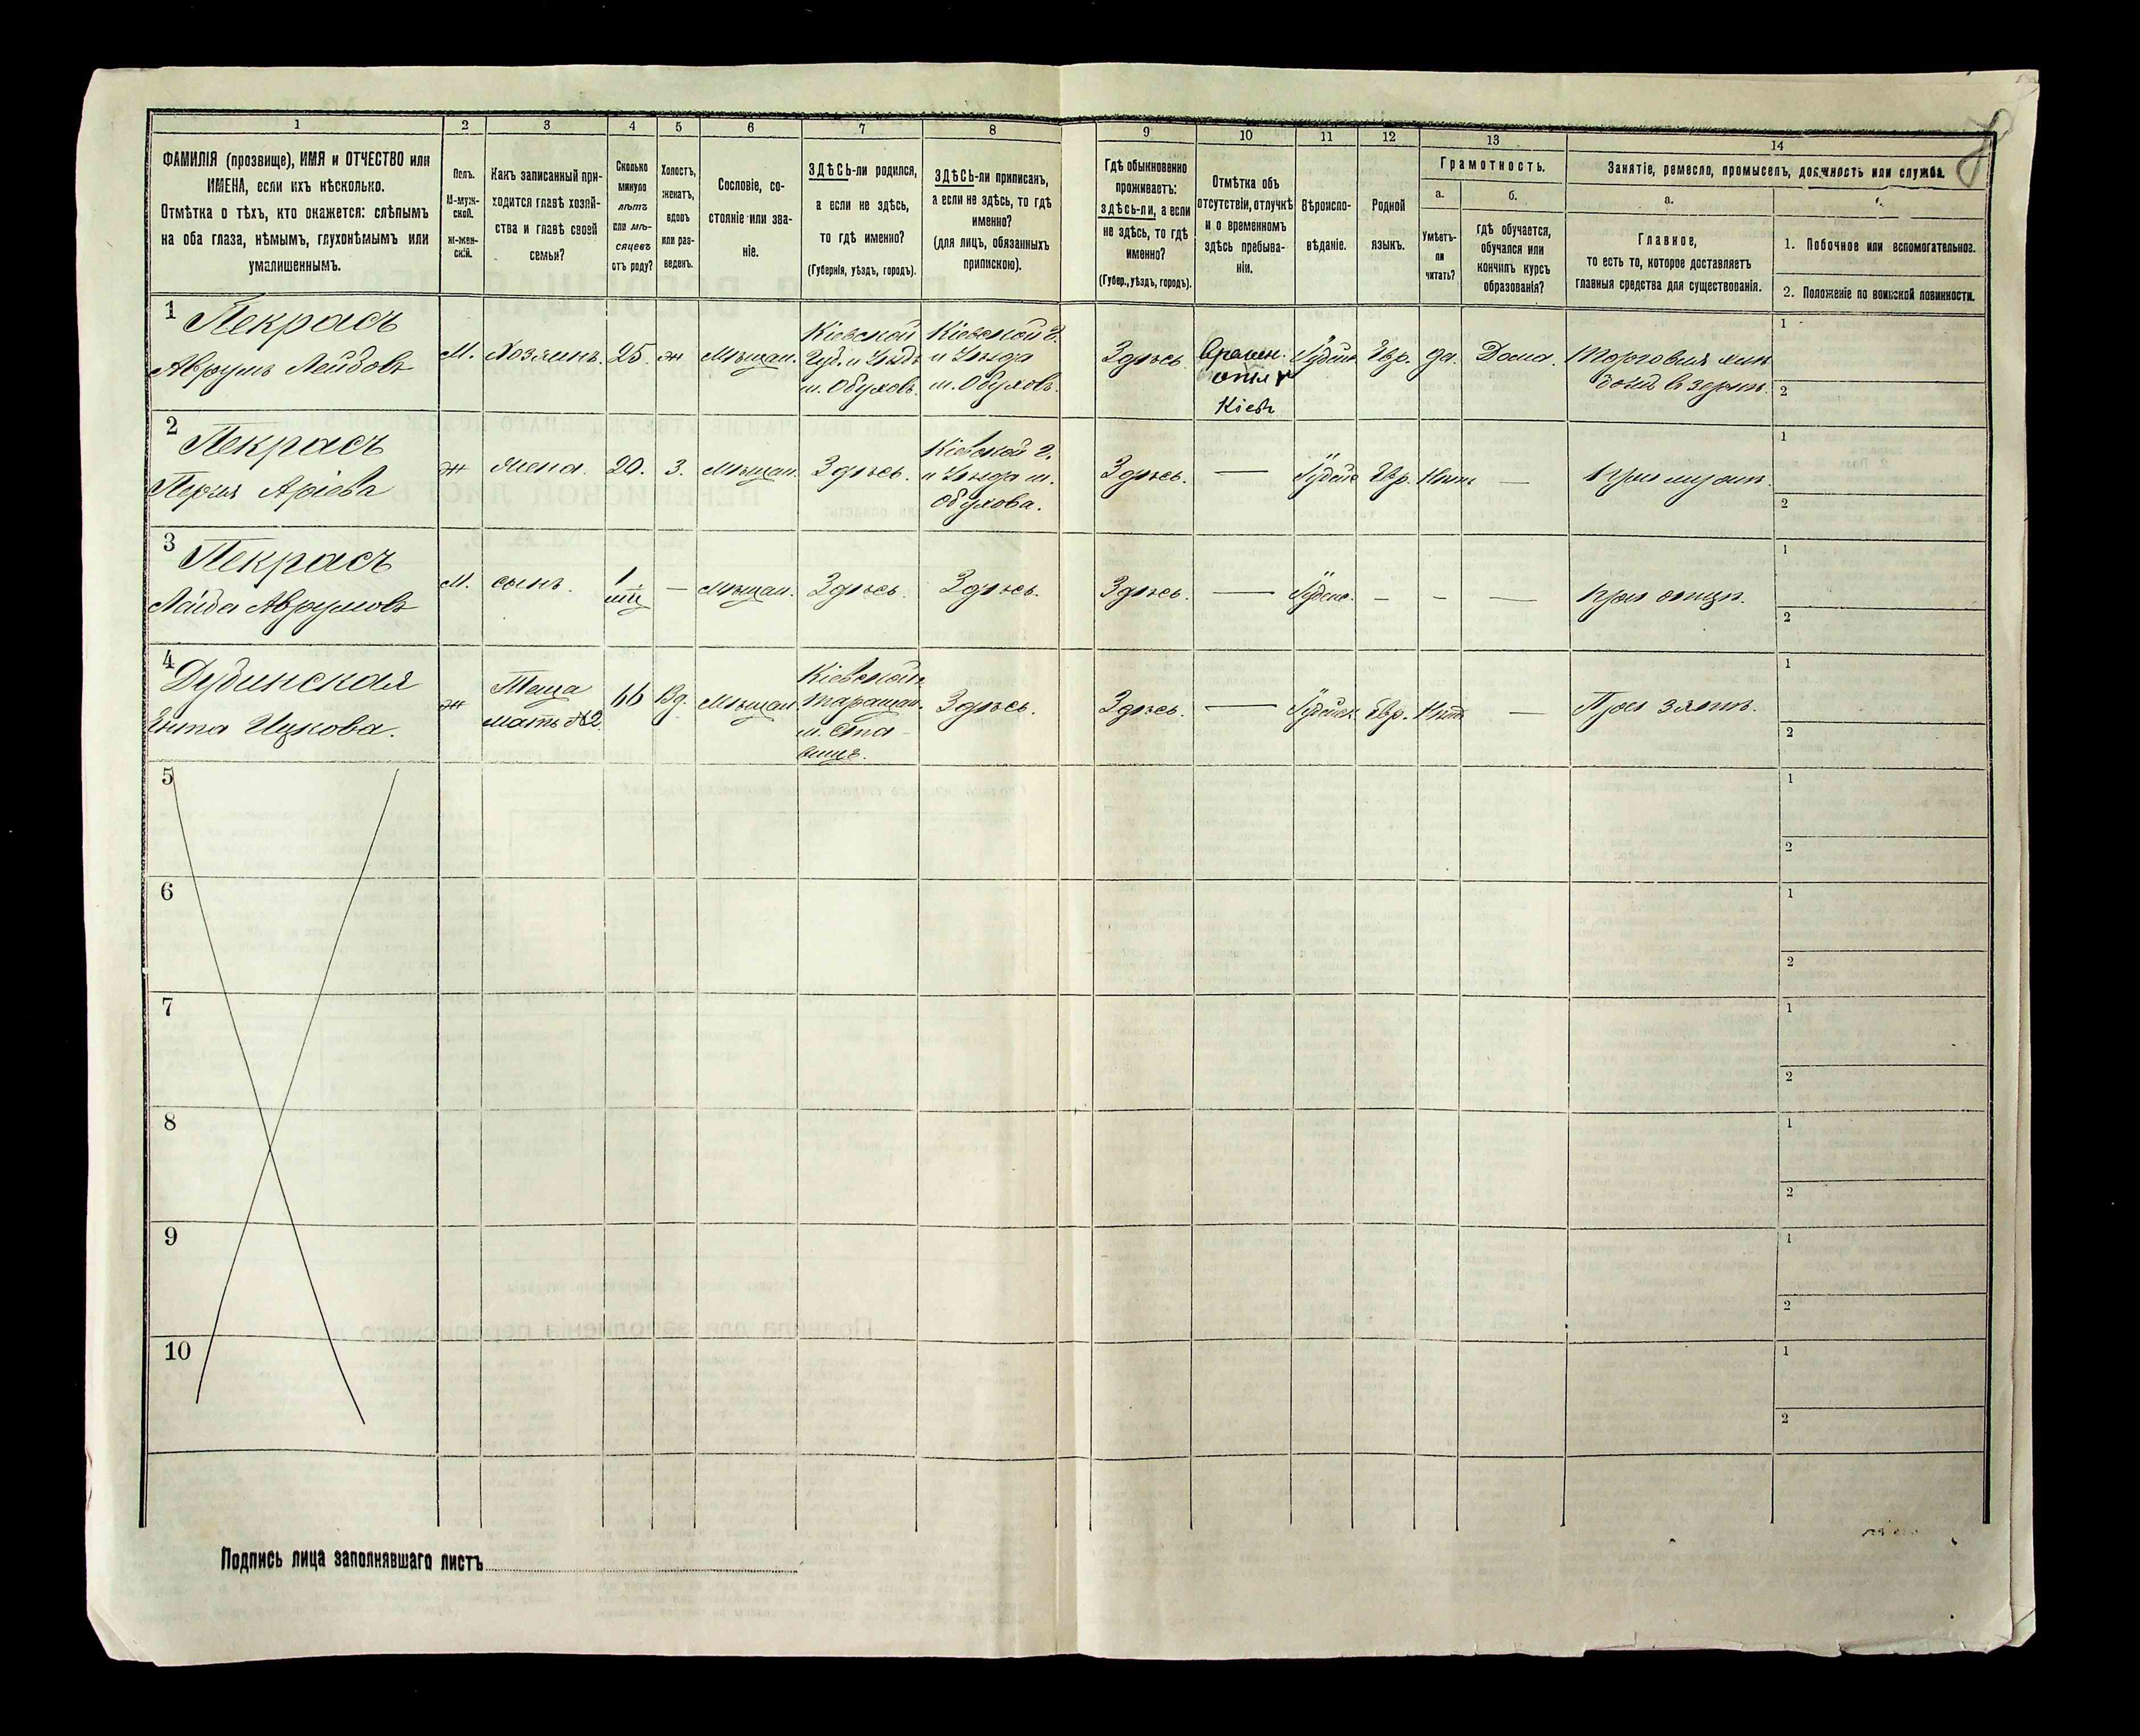 1 2 3 4 5 6 7 8 9 10 11 12 13 14
ФАМИЛІЯ (прозвище), ИМЯ и ОТЧЕСТВО или
ИМЕНА, если ихъ нѣсколько.
Отмѣтка о тѣхъ, кто окажется: слѣпымъ
на оба глаза, нѣмымъ, глухонѣмымъ или
умалишеннымъ.
Полъ.
М-муж-
ской.
ж-жен-
скій.
Какъ записанный при-
ходится главѣ хозяй-
ства и главѣ своей
семьи?
Сколько
минуло
лѣтъ
или мѣ-
сяцевъ
отъ роду?
Холостъ,
женатъ,
вдовъ
или раз-
веденъ.
Сословіе, со-
стояніе или зва-
ніе.
ЗДѢСЬ-ли родился,
а если не здѣсь,
то гдѣ именно?
(Губернія, уѣздъ, городъ).
ЗДѢСЬ-ли приписанъ,
а если не здѣсь, то гдѣ
именно?
(для лицъ, обязанныхъ
припискою).
Гдѣ обыкновенно
проживаетъ:
здѣсь-ли, а если
не здѣсь, то гдѣ
именно?
(Губер., уѣздъ, городъ).
Отмѣтка объ
отсутствіи, отлучкѣ
и о временномъ
здѣсь пребыва-
ніи.
Вѣроиспо-
вѣданіе.
Родной
языкъ.
Грамотность.
а.
Умѣетъ-
ли
читать?
б.
гдѣ обучается,
обучался или
кончилъ курсъ
образованія?
Занятіе, ремесло, промыселъ, должность или служба.
а.
Главное,
то есть то, которое доставляетъ
главныя средства для существованія.
1. Побочное или вспомогательное.
2. Положеніе по воинской повинности.
1 Пекрасъ
Аврумъ Лейбовъ
М. Хозяинъ. 25. ж Мѣщан.
Кіевской
Губ. и Уѣзд.
м. Обуховъ.
Кіевской г.
и Уѣзда
м. Обуховъ.
Здѣсь
Времен.
Кіевъ
Іудейск. Евр. да. Дома.
Торговля
1
2
2 Пекрасъ
Аріева
ж жена. 20. З. Мѣщан. Здѣсь.
Кіевской г.
и Уѣзда м.
Обухова.
Здѣсь. — Іудейс Евр. Нѣтъ — При мужѣ.
1
2
3 Пекрасъ
Лейба Аврумовъ
М. сынъ. 1 — Мѣщан. Здѣсь. Здѣсь. Здѣсь. — Іудейс. – – — при отцѣ.
1
2
4 Дубинская
Ицкова.
ж
Теща
мать №2
66 Вд. Мѣщан
Кіевской г.
Таращан.
м. Ста-
вищѣ.
Здѣсь. Здѣсь. — Іудейск Евр. Нѣтъ — При зятѣ.
1
2
5
1
2
6
1
2
7
1
2
8
1
2
9
1
2
10
1
2
Подпись лица заполнявшаго листъ